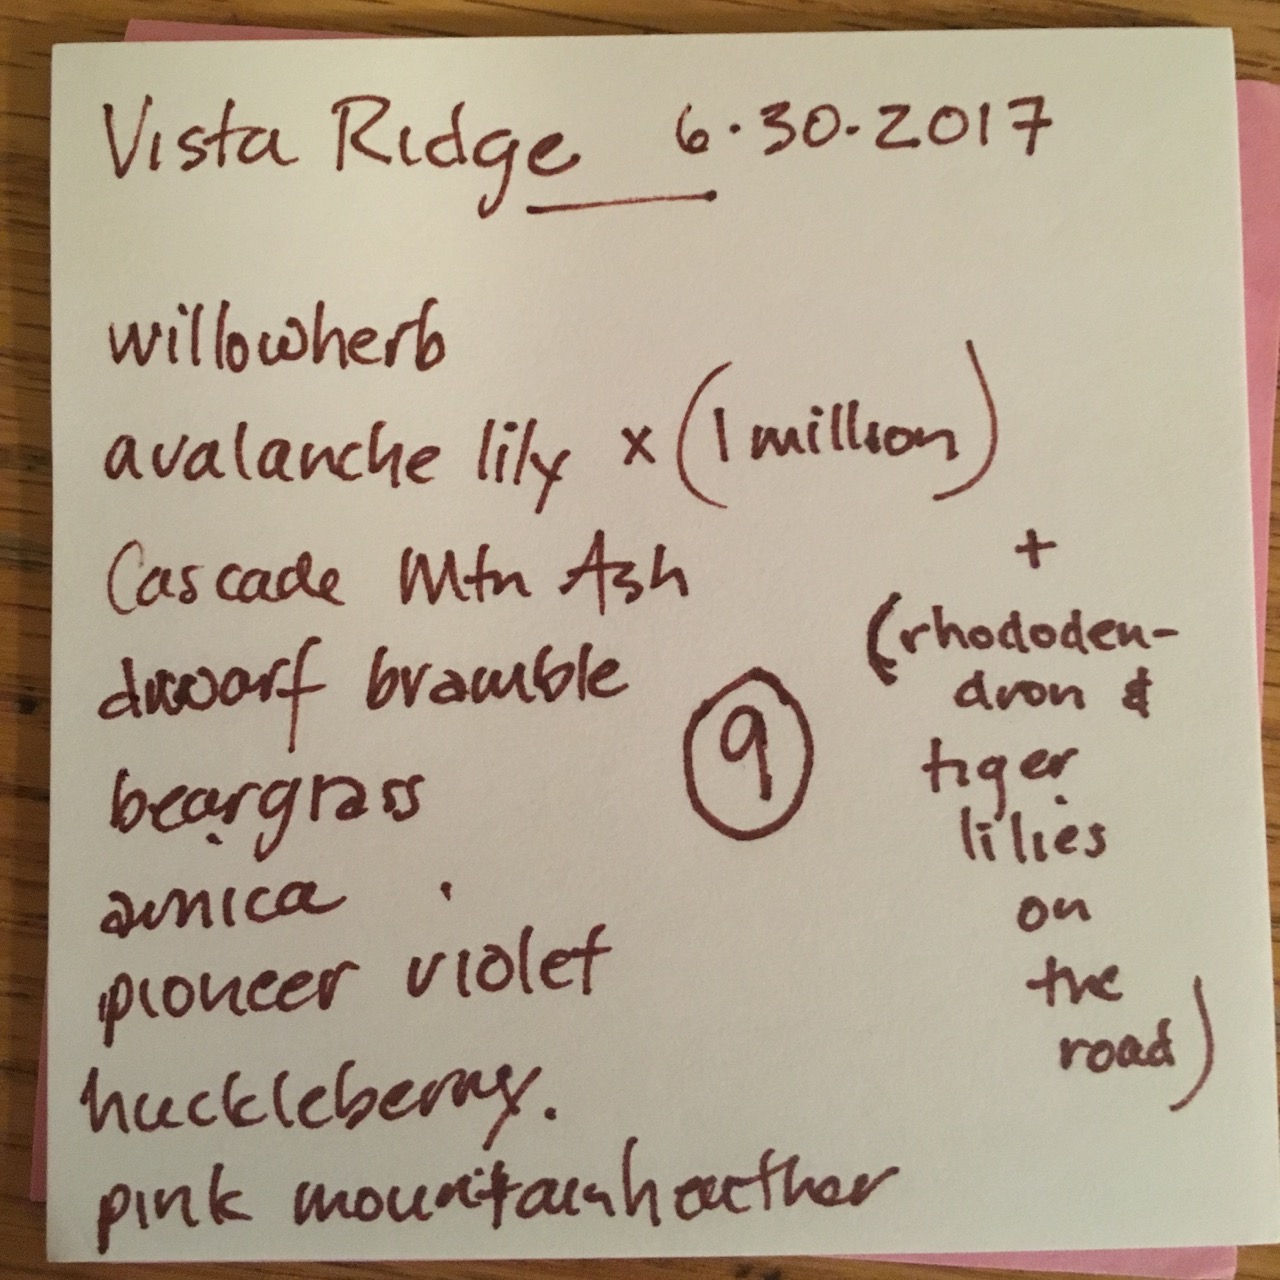 Vista Ridge 6.30.2017
willowherb
avalanche lily x (1 million)
Cascade Mtn Ash
dwarf bramble
beargrass
arnica
pioneer violet
huckleberry.
pink mountainheather
9
+
(rhododen-
dron &
tiger
lilies
on
the
road)